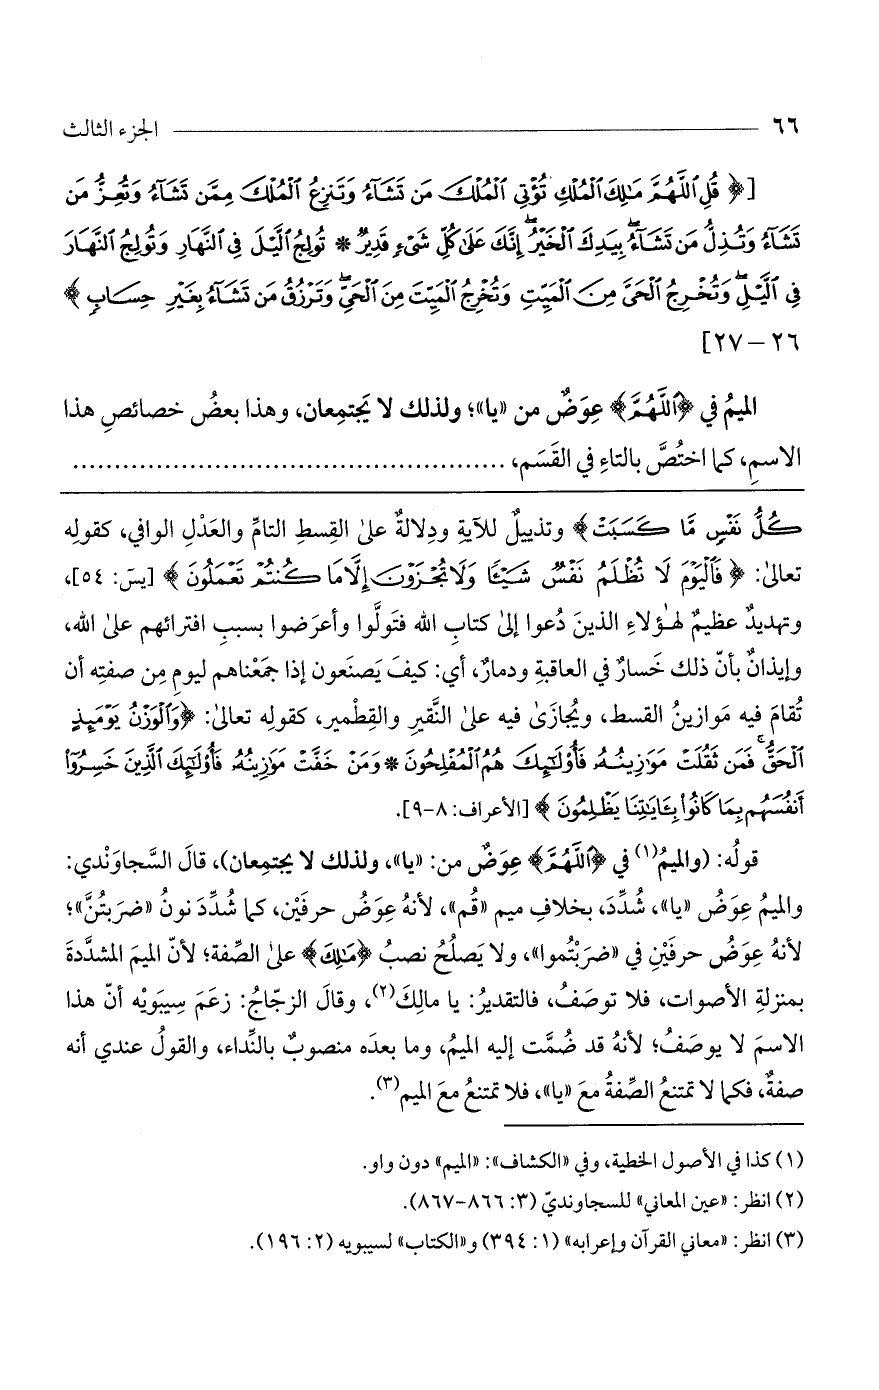 ٦٦ ــــــــــــــــــــ الجزء الثالث
[﴿ قُلِ ٱللَّهُمَّ مَـٰلِكَ ٱلْمُلْكِ تُؤْتِى ٱلْمُلْكَ مَن تَشَآءُ وَتَنزِعُ ٱلْمُلْكَ مِمَّن تَشَآءُ وَتُعِزُّ مَن
تَشَآءُ وَتُذِلُّ مَن تَشَآءُ ۖ بِيَدِكَ ٱلْخَيْرُ ۖ إِنَّكَ عَلَىٰ كُلِّ شَىْءٍ قَدِيرٌ * تُولِجُ ٱلَّيْلَ فِى ٱلنَّهَارِ وَتُولِجُ ٱلنَّهَارَ
فِى ٱلَّيْلِ ۖ وَتُخْرِجُ ٱلْحَىَّ مِنَ ٱلْمَيِّتِ وَتُخْرِجُ ٱلْمَيِّتَ مِنَ ٱلْحَىِّ ۖ وَتَرْزُقُ مَن تَشَآءُ بِغَيْرِ حِسَابٍ ﴾
٢٦ – ٢٧]
الميمُ في ﴿ٱللَّهُمَّ﴾ عِوَضٌ من «يا»؛ ولذلك لا يَجتمِعان، وهذا بعضُ خصائصِ هذا
الاسمِ، كما اختُصَّ بالتاءِ في القَسَم، ....................................................
كُلُّ نَفْسٍ مَّا كَسَبَتْ﴾ وتذييلٌ للآيةِ ودِلالةٌ على القِسطِ التامِّ والعَدْلِ الوافي، كقولِه
تعالىٰ: ﴿ فَٱلْيَوْمَ لَا تُظْلَمُ نَفْسٌ شَيْـًٔا وَلَا تُجْزَوْنَ إِلَّا مَا كُنتُمْ تَعْمَلُونَ ﴾ [يسٓ: ٥٤]،
وتهديدٌ عظيمٌ لهٰؤلاءِ الذينَ دُعوا إلىٰ كتابِ الله فتَولَّوا وأعرَضوا بسببِ افترائهم علىٰ الله،
وإيذانٌ بأنّ ذلك خَسارٌ في العاقبةِ ودمارٌ، أي: كيفَ يَصنَعون إذا جمَعْناهم ليومٍ مِن صفتِه أن
تُقامَ فيه مَوازينُ القسط، ويُجازَىٰ فيه علىٰ النَّقيرِ والقِطْميرِ، كقولِه تعالىٰ: ﴿وَٱلْوَزْنُ يَوْمَئِذٍ
ٱلْحَقُّ ۚ فَمَن ثَقُلَتْ مَوَٰزِينُهُۥ فَأُو۟لَـٰٓئِكَ هُمُ ٱلْمُفْلِحُونَ * وَمَنْ خَفَّتْ مَوَٰزِينُهُۥ فَأُو۟لَـٰٓئِكَ ٱلَّذِينَ خَسِرُوٓا۟
أَنفُسَهُم بِمَا كَانُوا۟ بِـَٔايَـٰتِنَا يَظْلِمُونَ ﴾ [الأعراف: ٨-٩].
قولُه: (والميمُ(١) في ﴿ٱللَّهُمَّ﴾ عِوَضٌ من: «يا»، ولذلك لا يجتمِعان)، قالَ السَّجاوَنْدي:
والميمُ عِوَضُ «يا»، شُدِّدَ، بخلافِ ميم «قُم»، لأنهُ عِوَضُ حرفَيْن، كما شُدِّدَ نونُ «ضرَبتُنَّ»؛
لأنهُ عِوَضُ حرفَيْنِ في «ضرَبْتُموا»، ولا يَصلُحُ نصبُ ﴿مَـٰلِكَ﴾ علىٰ الصِّفة؛ لأنّ الميمَ المشدَّدةَ
بمنزلةِ الأصوات، فلا توصَفُ، فالتقديرُ: يا مالِكَ(٢)، وقالَ الزجّاجُ: زعَمَ سِيبَوَيْه أنّ هذا
الاسمَ لا يوصَفُ؛ لأنهُ قد ضُمَّت إليه الميمُ، وما بعدَه منصوبٌ بالنِّداء، والقولُ عندي أنه
صفةٌ، فكما لا تمتنعُ الصِّفةُ معَ «يا»، فلا تمتنعُ معَ الميم(٣).
(١) كذا في الأصول الخطية، وفي «الكشاف»: «الميم» دون واو.
(٢) انظر: «عين المعاني» للسجاونديّ (٣: ٨٦٦-٨٦٧).
(٣) انظر: «معاني القرآن وإعرابه» (١: ٣٩٤) و«الكتاب» لسيبويه (٢: ١٩٦).